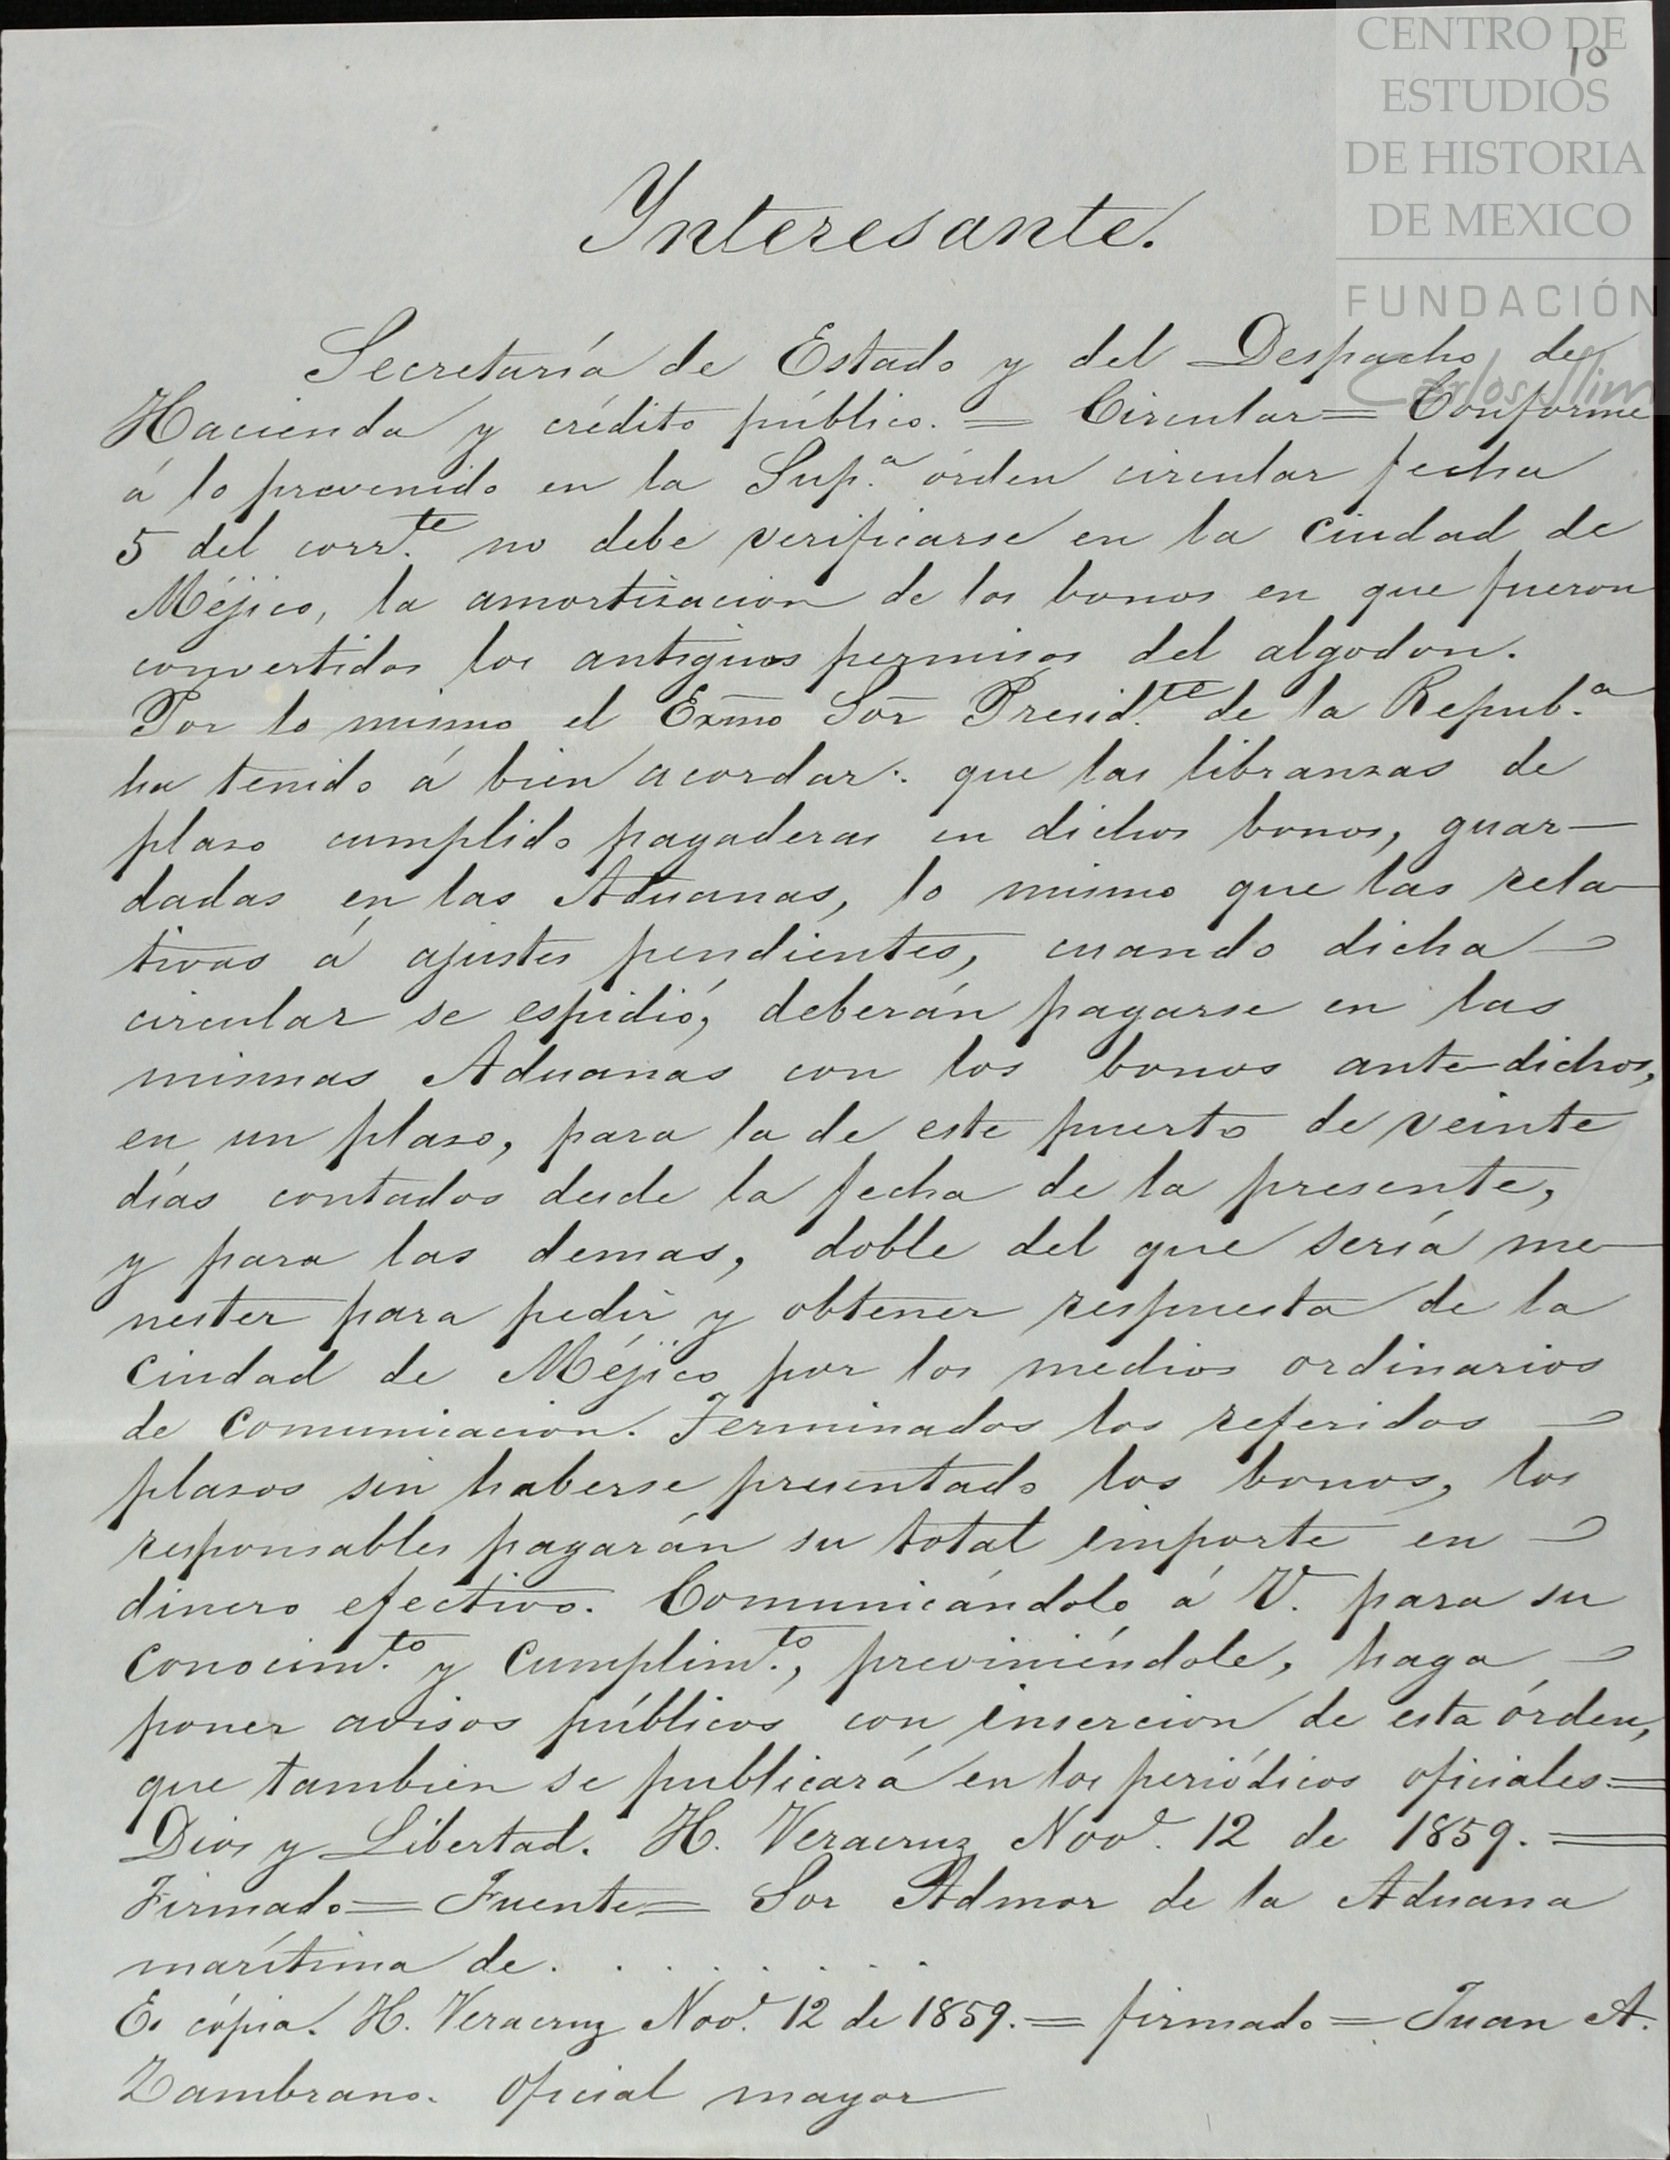 CENTRO DE
ESTUDIOS
DE HISTORIA
DE MEXICO
FUNDACIÓN
Carlos Slim
10
Ynteresante.
Secretaría de Estado y del Despacho de
Hacienda y crédito público. = Circular = Conforme
á lo prevenido en la Sup.ª órden circular fecha
5 del corr.te no debe verificarse en la Ciudad de
Méjico, la amortisacion de los bonos en que fueron
convertidos los antiguos permisos del algodon.
Por lo mismo el Exmo Sor Presid.te de la Repub.ª
ha tenido á bien acordar: que las libransas de
plaso cumplido pagaderas en dichos bonos, guar-
dadas en las Aduanas, lo mismo que las rela-
tivas á ajustes pendientes, cuando dicha
circular se espidió, deberán pagarse en las
mismas Aduanas con los bonos ante-dichos,
en un plaso, para la de este puerto de veinte
días contados desde la fecha de la presente,
y para las demas, doble del que sería me-
nester para pedir y obtener respuesta de la
Ciudad de Méjico por los medios ordinarios
de Comunicacion. Terminados los referidos
plasos sin haberse presentado los bonos, los
responsables pagarán su total importe en
dinero efectivo. Comunicándolo á V. para su
Conocim.to y Cumplim.to, previniéndole, haga
poner avisos públicos con insercion de esta órden,
que tambien se publicará en los periódicos oficiales =
Dios y Libertad. H. Veracruz Nov.e 12 de 1859. =
Firmado = Fuente = Sor Admor de la Aduana
marítima de . . . . . . . .
Es cópia. H. Veracruz Nov.e 12 de 1859. = firmado = Juan A.
Zambrano. Oficial mayor